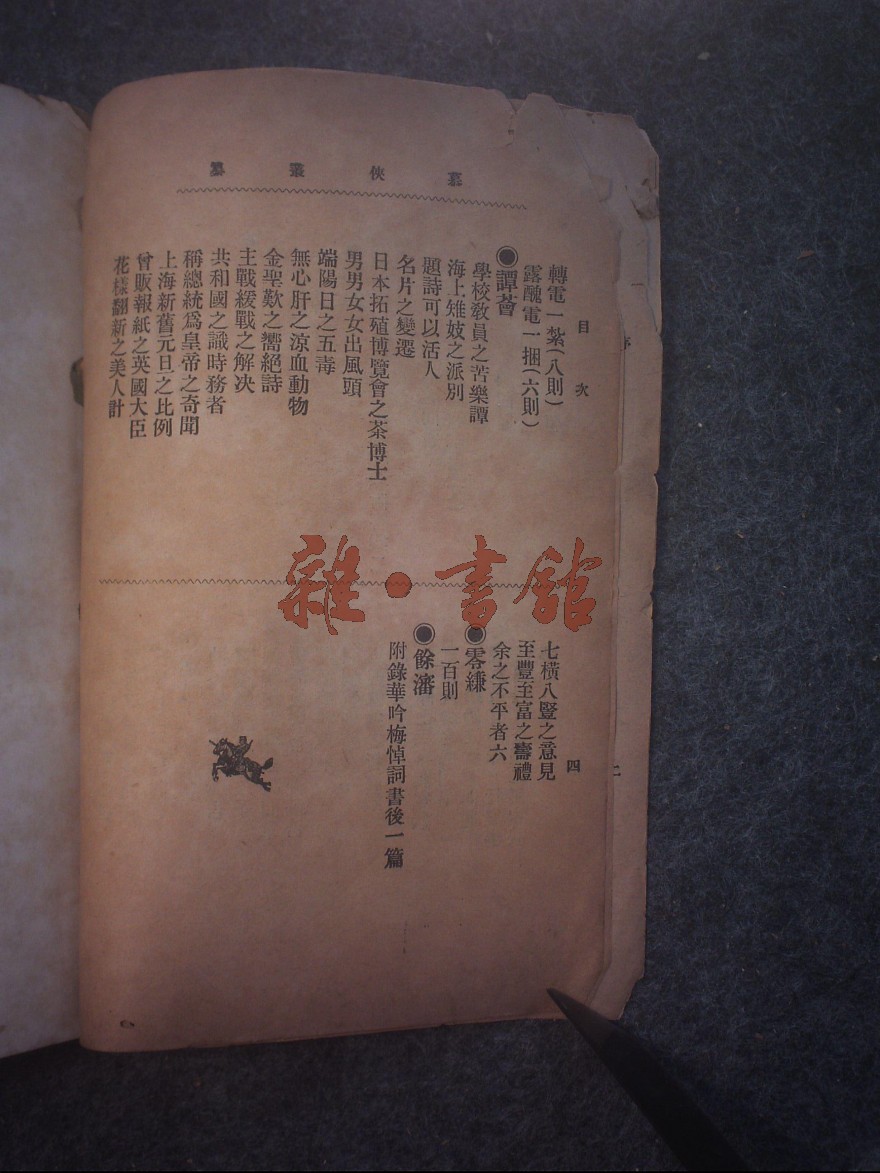 慕俠叢纂
目次
四
轉電一紮(八則)
露醜電一捆(六則)
◉譚薈
學校教員之苦樂譚
海上雉妓之派別
題詩可以活人
名片之變遷
日本拓殖博覽會之茶博士
男男女女出風頭
端陽日之五毒
無心肝之涼血動物
金聖歎之嚮絕詩
主戰緩戰之解決
共和國之識時務者
稱總統爲皇帝之奇聞
上海新舊元旦之比例
曾販報紙之英國大臣
花樣翻新之美人計
七橫八豎之意見
至豐至富之壽禮
余之不平者六
◉零縑
一百則
◉餘瀋
附錄華吟梅悼詞書後一篇
雜·書館
二